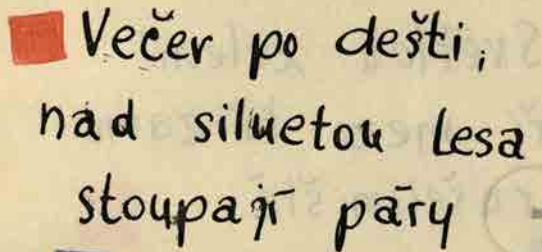 Večer po dešti,
nad siluetou lesa
stoupají páry